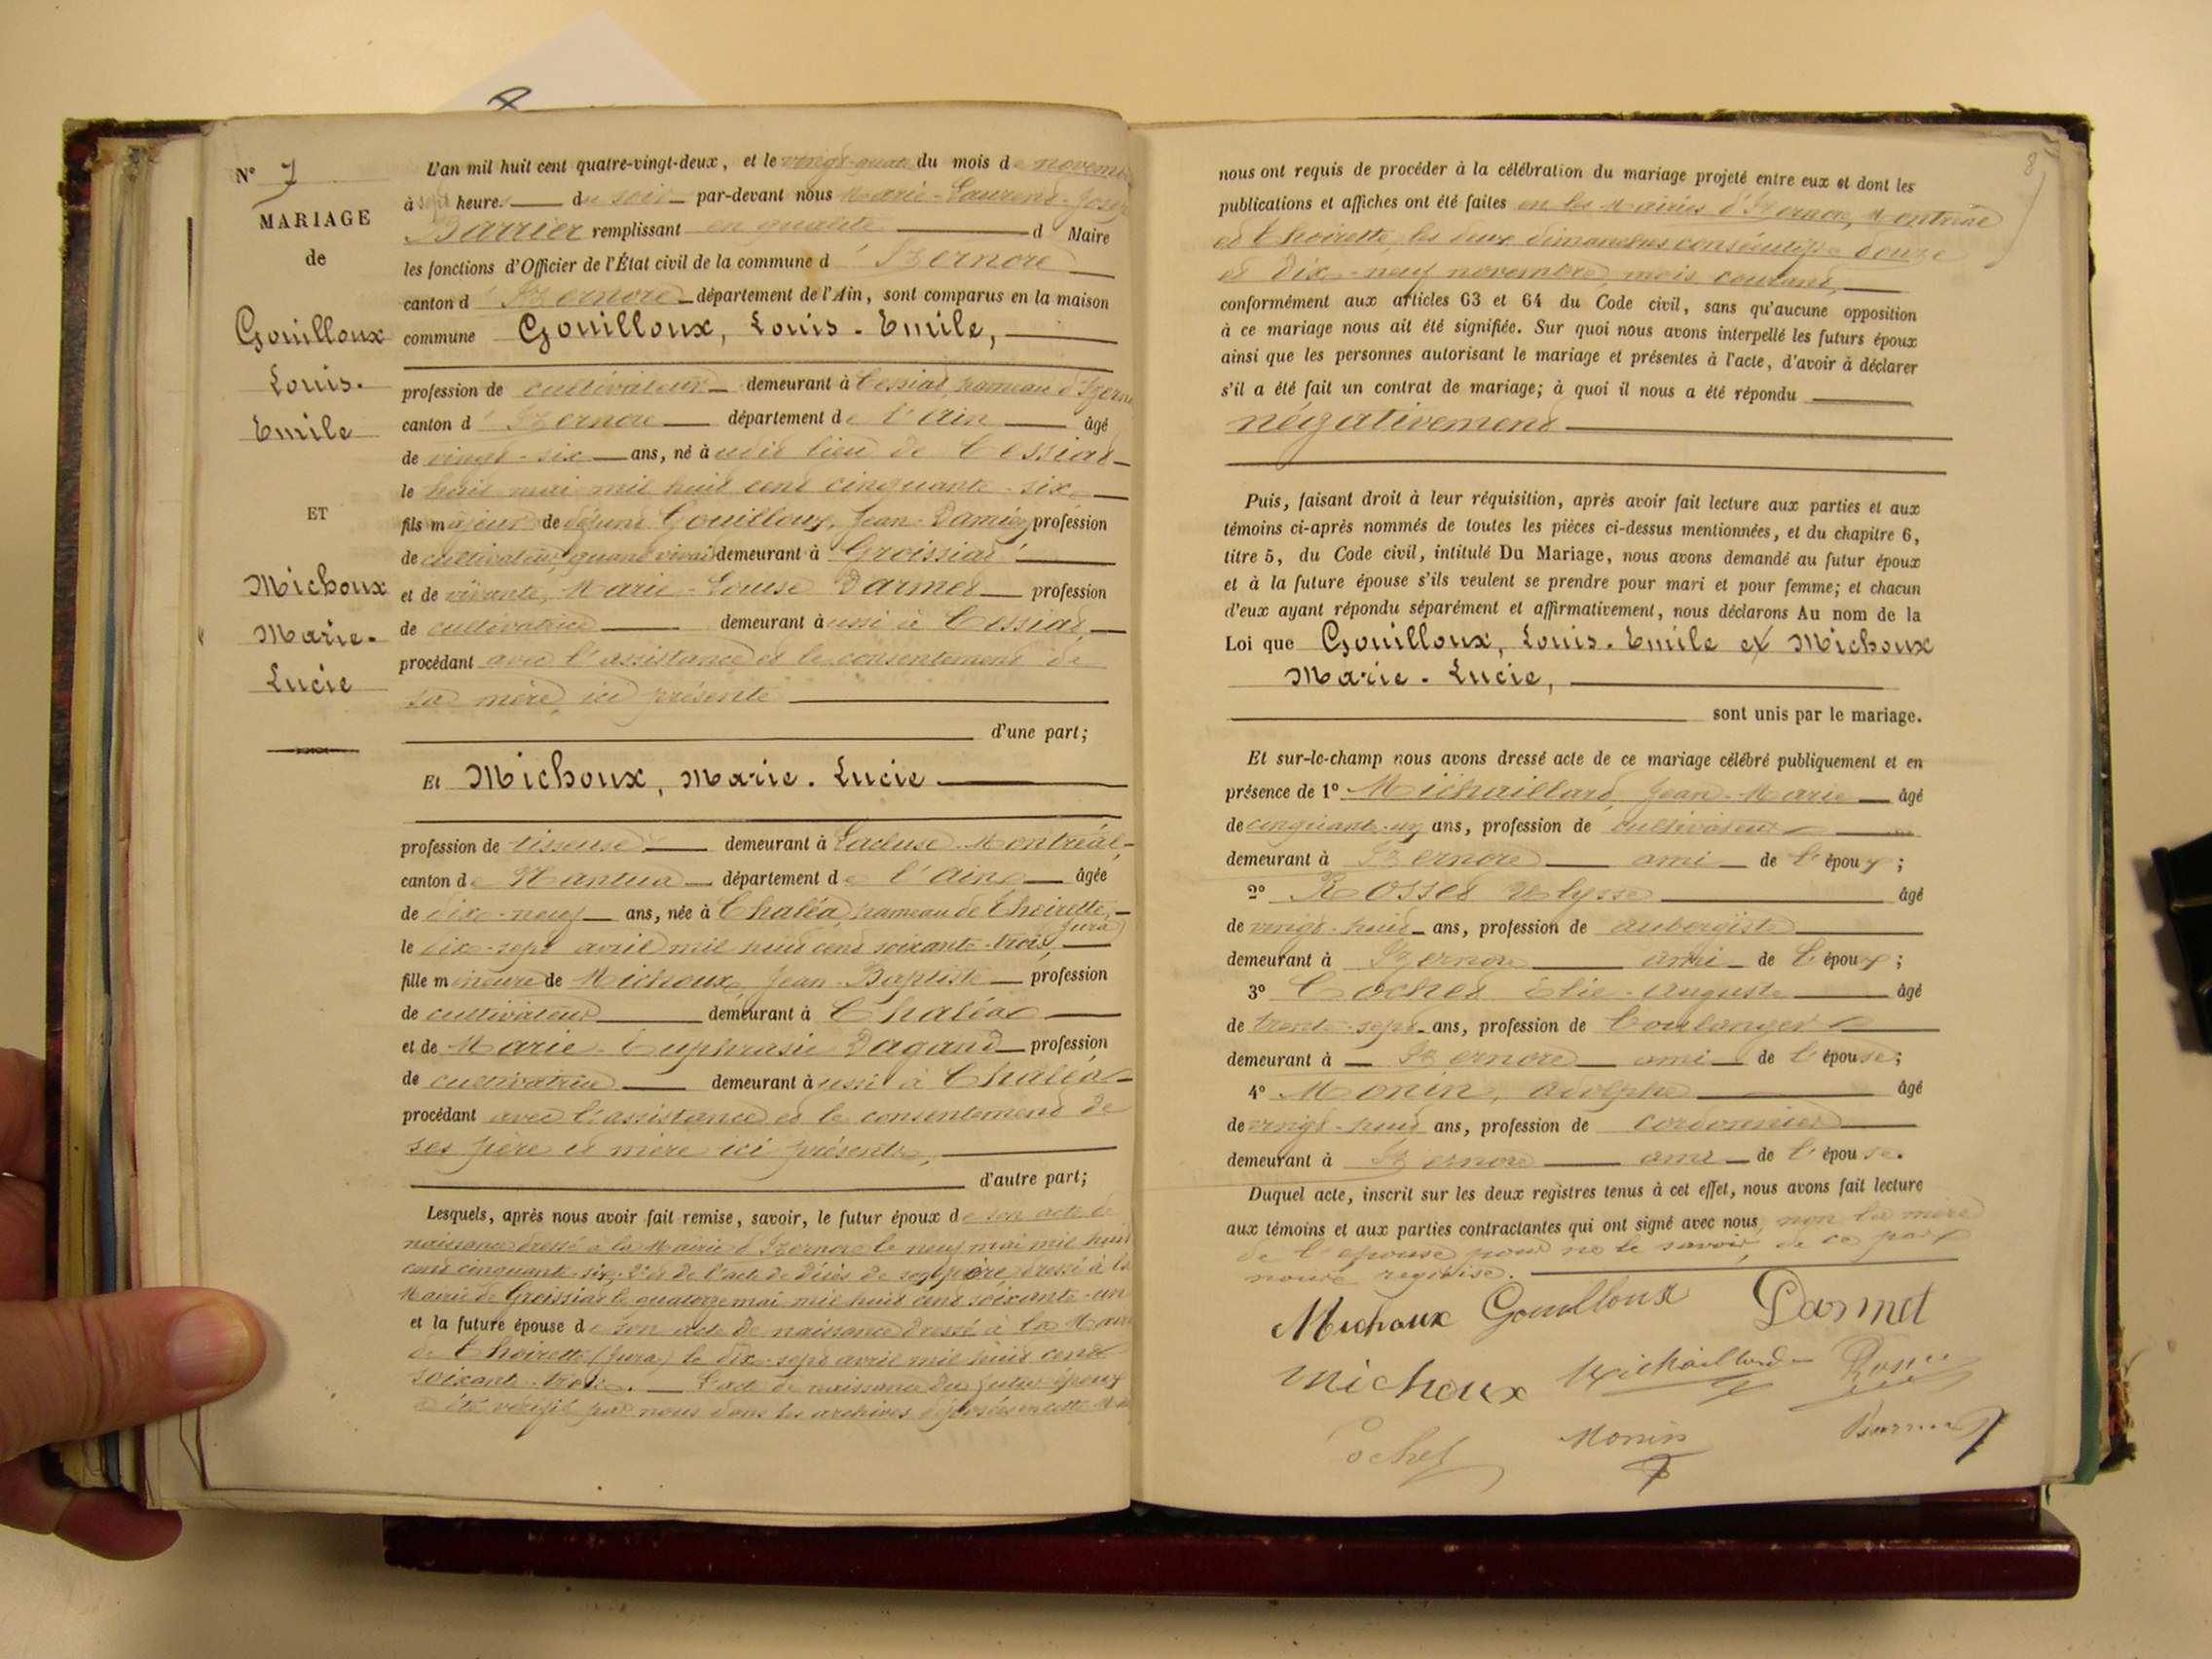 N° 7
MARIAGE
de
Gouilloux
Louis-
Emile
ET
Michoux
Marie-
Lucie
L'an mil huit cent quatre-vingt-deux, et le vingt-quatre du mois de novembre
à sept heures du soir par-devant nous Marie-Laurent-Joseph
Barrier remplissant en qualité d Maire
les fonctions d'Officier de l'État civil de la commune d'Izernore
canton d'Izernore département de l'Ain, sont comparus en la maison
commune Gouilloux, Louis-Emile,
profession de cultivateur demeurant à Cessiat, hameau d'Izernore
canton d'Izernore département de l'Ain âgé
de vingt-six ans, né audit lieu de Cessiat
le huit mai mil huit cent cinquante-six
fils majeur de défunt Gouilloux, Jean-Damien profession
de cultivateur quand vivait demeurant à Groissiat
et de vivante, Marie-Louise Darmet profession
de cultivatrice demeurant aussi à Cessiat,
procédant avec l'assistance et le consentement de
sa mère, ici présente
d'une part;
Et Michoux, Marie-Lucie
profession de tisseuse demeurant à Lacluse Montréal,
canton de Nantua département de l'Ain âgée
de dix-neuf ans, née à Chaléa, hameau de Thoirette, Jura)
le dix-sept avril mil huit cent soixante-trois,
fille mineure de Michoux, Jean-Baptiste profession
de cultivateur demeurant à Chaléa
et de Marie-Euphrasie Dagand profession
de cultivatrice demeurant aussi à Chaléa
procédant avec l'assistance et le consentement de
ses père et mère ici présents,
d'autre part;
Lesquels, après nous avoir fait remise, savoir, le futur époux de son acte de
naissance dressé à la Mairie d'Izernore le neuf mai mil huit
cent cinquante-six, 2° et de l'acte de décès de son père, dressé à la
Mairie de Groissiat le quatorze mai mil huit cent soixante-un
et la future épouse de son acte de naissance dressé à la Mairie
de Thoirette (Jura) le dix-sept avril mil huit cent
soixante-trois. L'acte de naissance du futur époux
a été vérifié par nous dans les archives déposées en cette
8
nous ont requis de procéder à la célébration du mariage projeté entre eux et dont les
publications et affiches ont été faites en les Mairies d'Izernore, Montréal
et Thoirette, les deux dimanches consécutifs douze
et dix-neuf novembre, mois courant,
conformément aux articles 63 et 64 du Code civil, sans qu'aucune opposition
à ce mariage nous ait été signifiée. Sur quoi nous avons interpellé les futurs époux
ainsi que les personnes autorisant le mariage et présentes à l'acte, d'avoir à déclarer
s'il a été fait un contrat de mariage; à quoi il nous a été répondu
négativement
Puis, faisant droit à leur réquisition, après avoir fait lecture aux parties et aux
témoins ci-après nommés de toutes les pièces ci-dessus mentionnées, et du chapitre 6,
titre 5, du Code civil, intitulé Du Mariage, nous avons demandé au futur époux
et à la future épouse s'ils veulent se prendre pour mari et pour femme; et chacun
d'eux ayant répondu séparément et affirmativement, nous déclarons Au nom de la
Loi que Gouilloux, Louis-Emile et Michoux
Marie-Lucie,
sont unis par le mariage.
Et sur-le-champ nous avons dressé acte de ce mariage célébré publiquement et en
présence de 1° Michaillard, Jean-Marie âgé
de cinquante-un ans, profession de cultivateur
demeurant à Izernore ami de l'époux;
2° Rosset Ulysse âgé
de vingt-huit ans, profession de aubergiste
demeurant à Izernore ami de l'époux;
3° Cochet Elie-Auguste âgé
de trente-sept ans, profession de boulanger
demeurant à Izernore ami de l'épouse;
4° Monin, Adolphe âgé
de vingt-huit ans, profession de cordonnier
demeurant à Izernore ami de l'épouse.
Duquel acte, inscrit sur les deux registres tenus à cet effet, nous avons fait lecture
aux témoins et aux parties contractantes qui ont signé avec nous, non la mère
de l'épouse pour ne le savoir, de ce par
nous requise.
Michoux Gouilloux Darmet
Michoux Michaillard Rosset
Cochet Monin Barrier